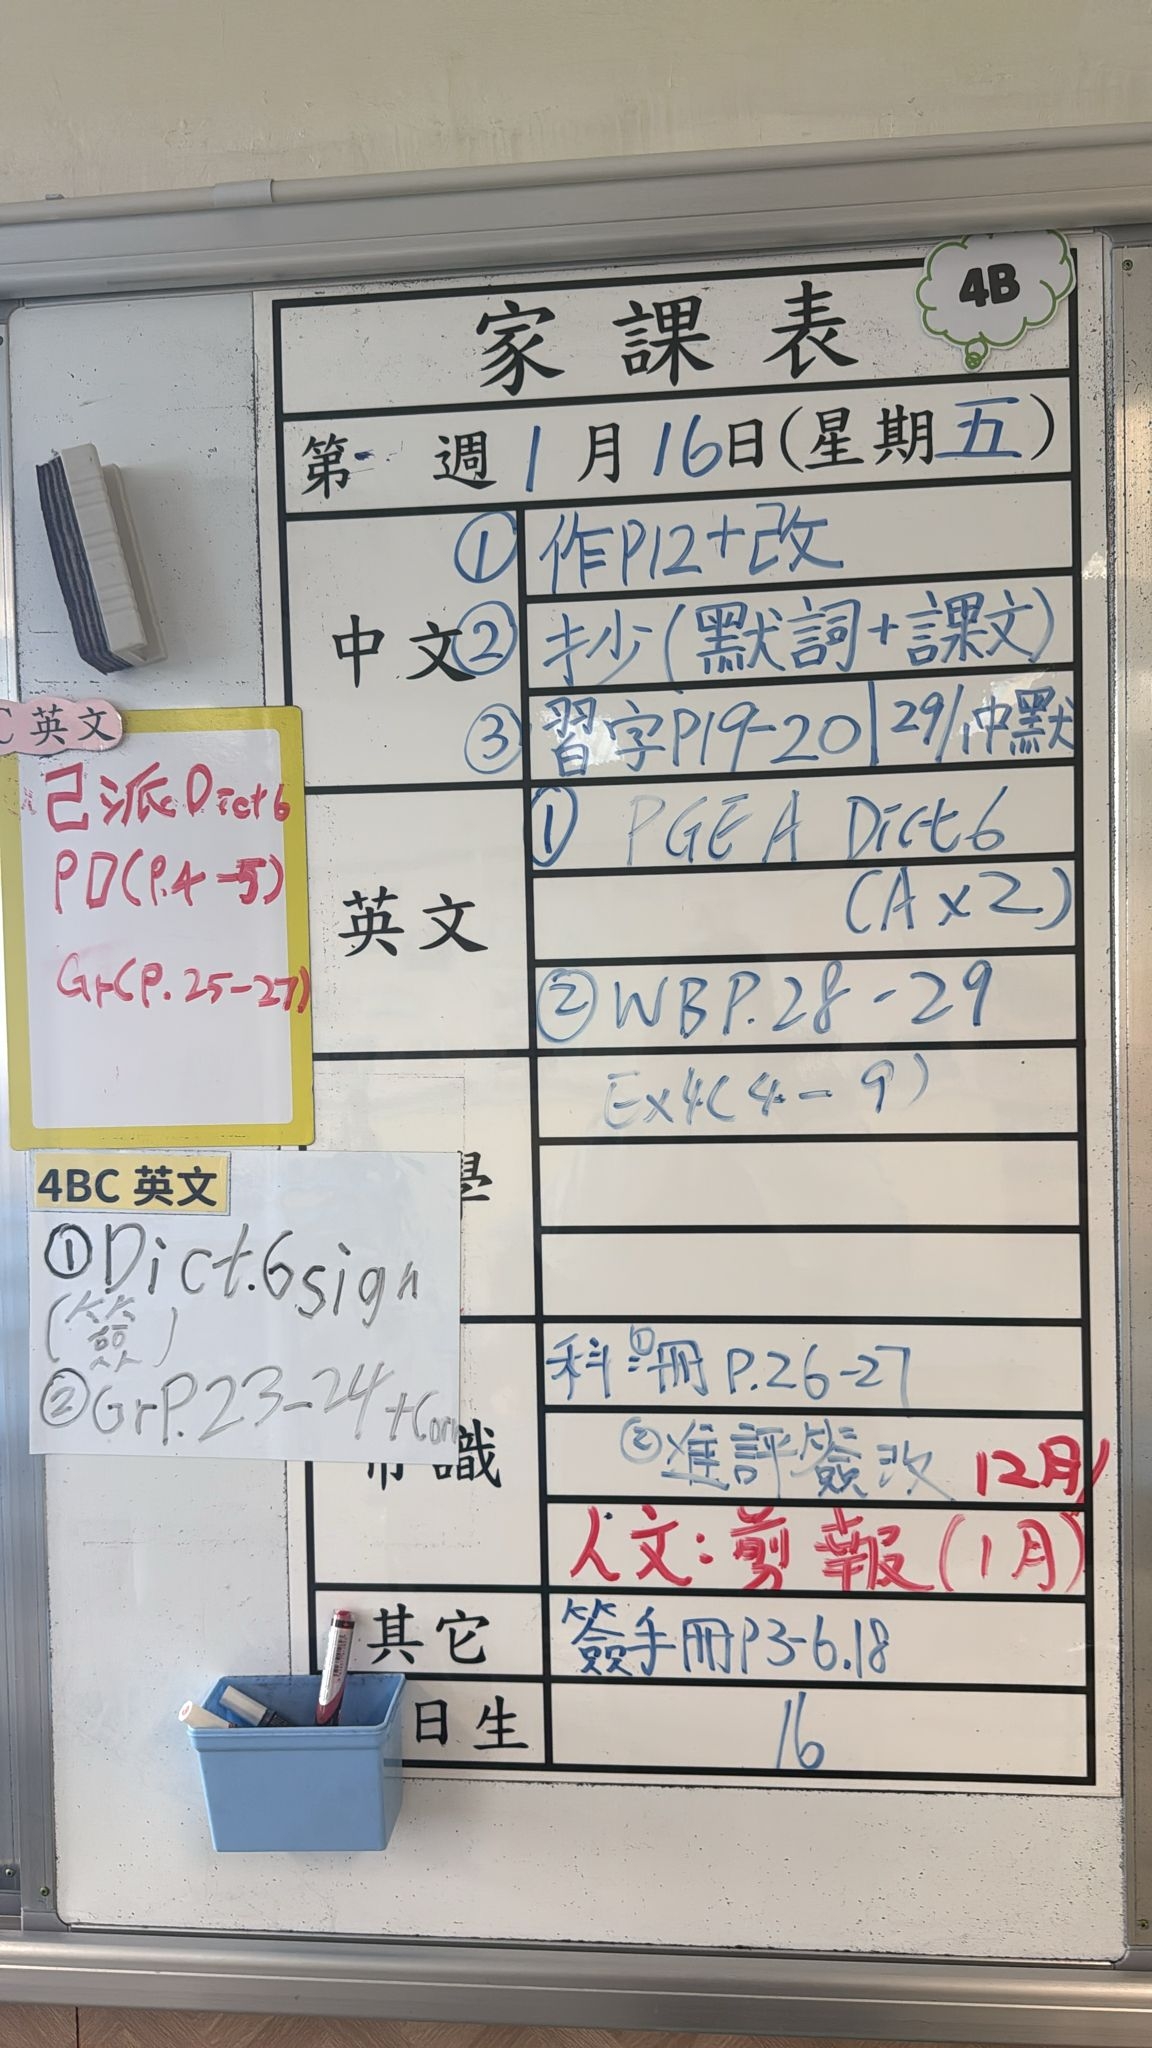 家課表
4B
第 週 1月16日(星期五)
中文
① 作P12+改
② 抄(默詞+課文)
③ 習字P19-20 | 29/1中默
英文
① PGEA Dict 6
(A x 2)
② WB P.28-29
Ex4(4-9)
學
常識
科①冊 P.26-27
②進評簽改 12月
人文:剪報(1月)
其它
簽手冊P3-6.18
日生
16
C 英文
己派 Dict 6
PD(P.4-5)
Gr(P.25-27)
4BC 英文
① Dict.6 sign
(簽)
② Gr P.23-24 +Corr